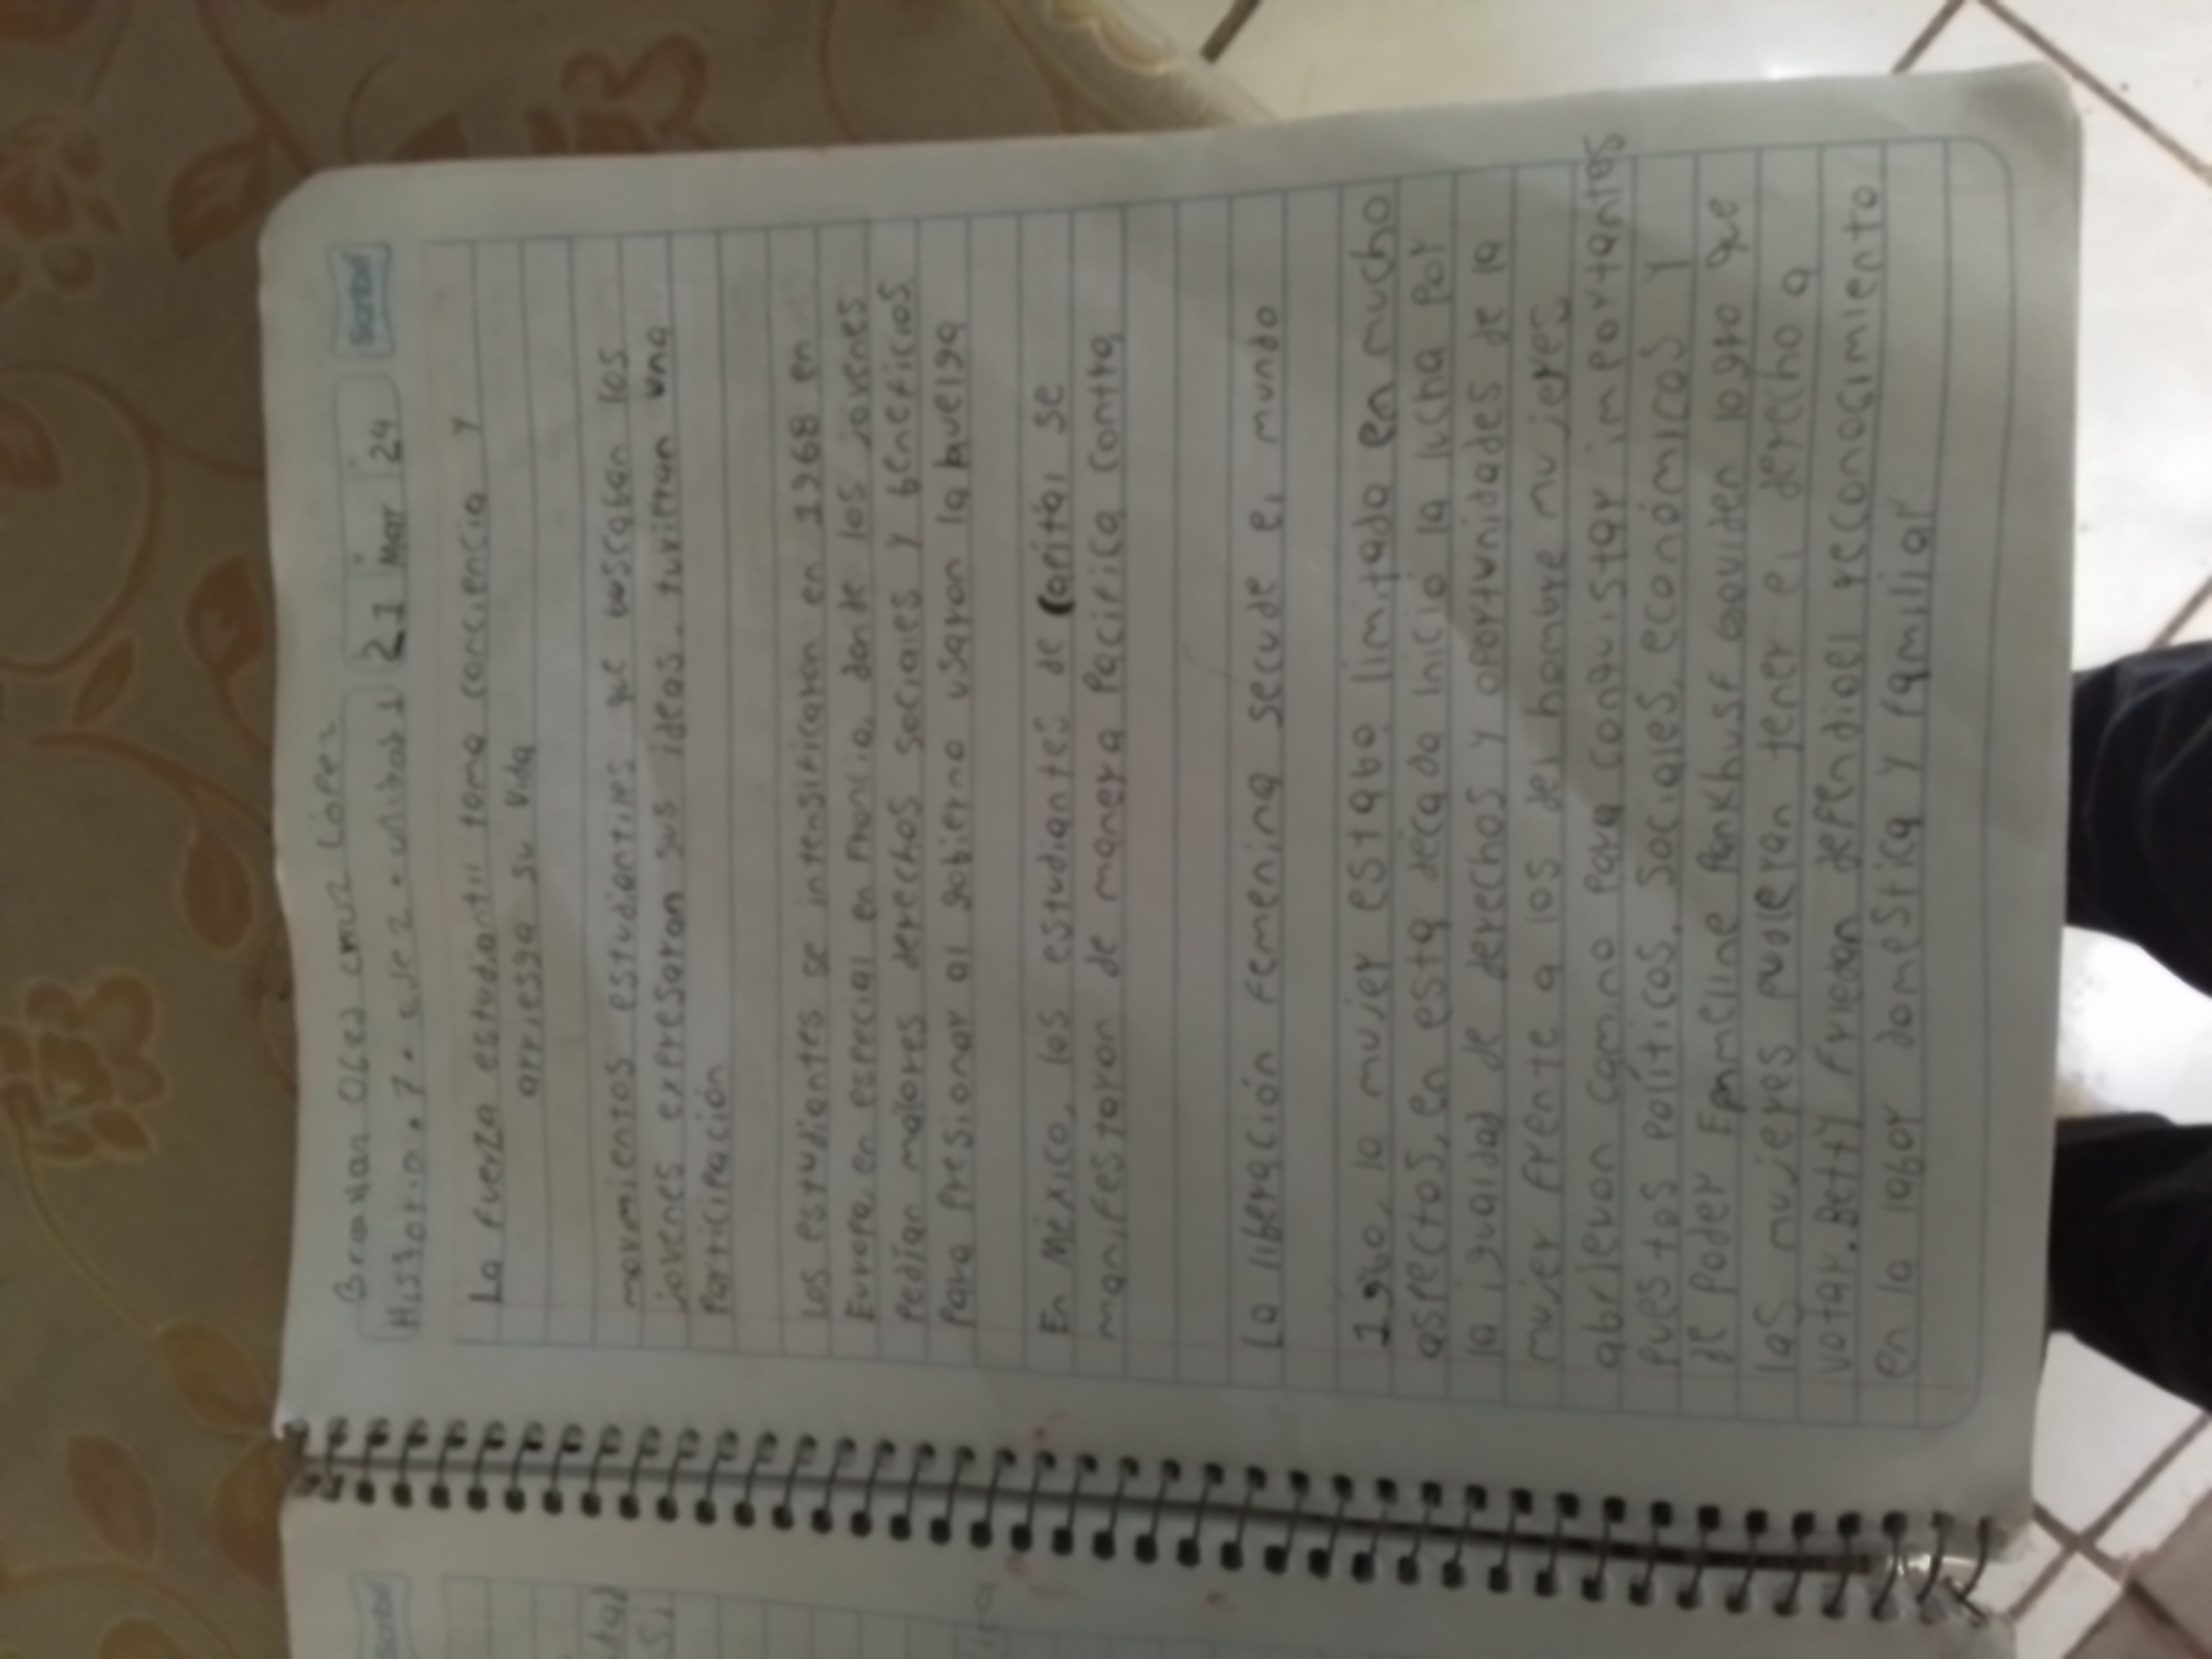 Scribe
Cruz López
Historia. 7.
21 Mar 24
La fuerza estudiantil toma conciencia y
arriesga su vida
movimientos estudiantiles que buscaban los
jovenes expresaran sus ideas. tuvieran una
Participación
Los estudiantes se intensificaron en 1968 en
Europa, en especial en Francia, donde los jovenes
Pedían malores derechos sociales y beneficios
Para Presionar al gobierno usaron la huelga
En México, los estudiantes de Capital se
manifestaron de manera Pacifica contra
La liberación Femenina secude el mundo
1960, la mujer estabo limitada en mucho
aspectos, en esta decada inicio la lucha por
la igualdad de derechos y oportunidades de la
mujer frente a los del hombre mujeres
abrieron camino para conquistar importantes
Puestos Políticos, sociales, económicos y
de Poder Emmeline Pankhusf logro que
las mujeres pudieran tener el derecho a
votar. Betty Friedan defendioel reconocimiento
en la labor doméstica y familiar